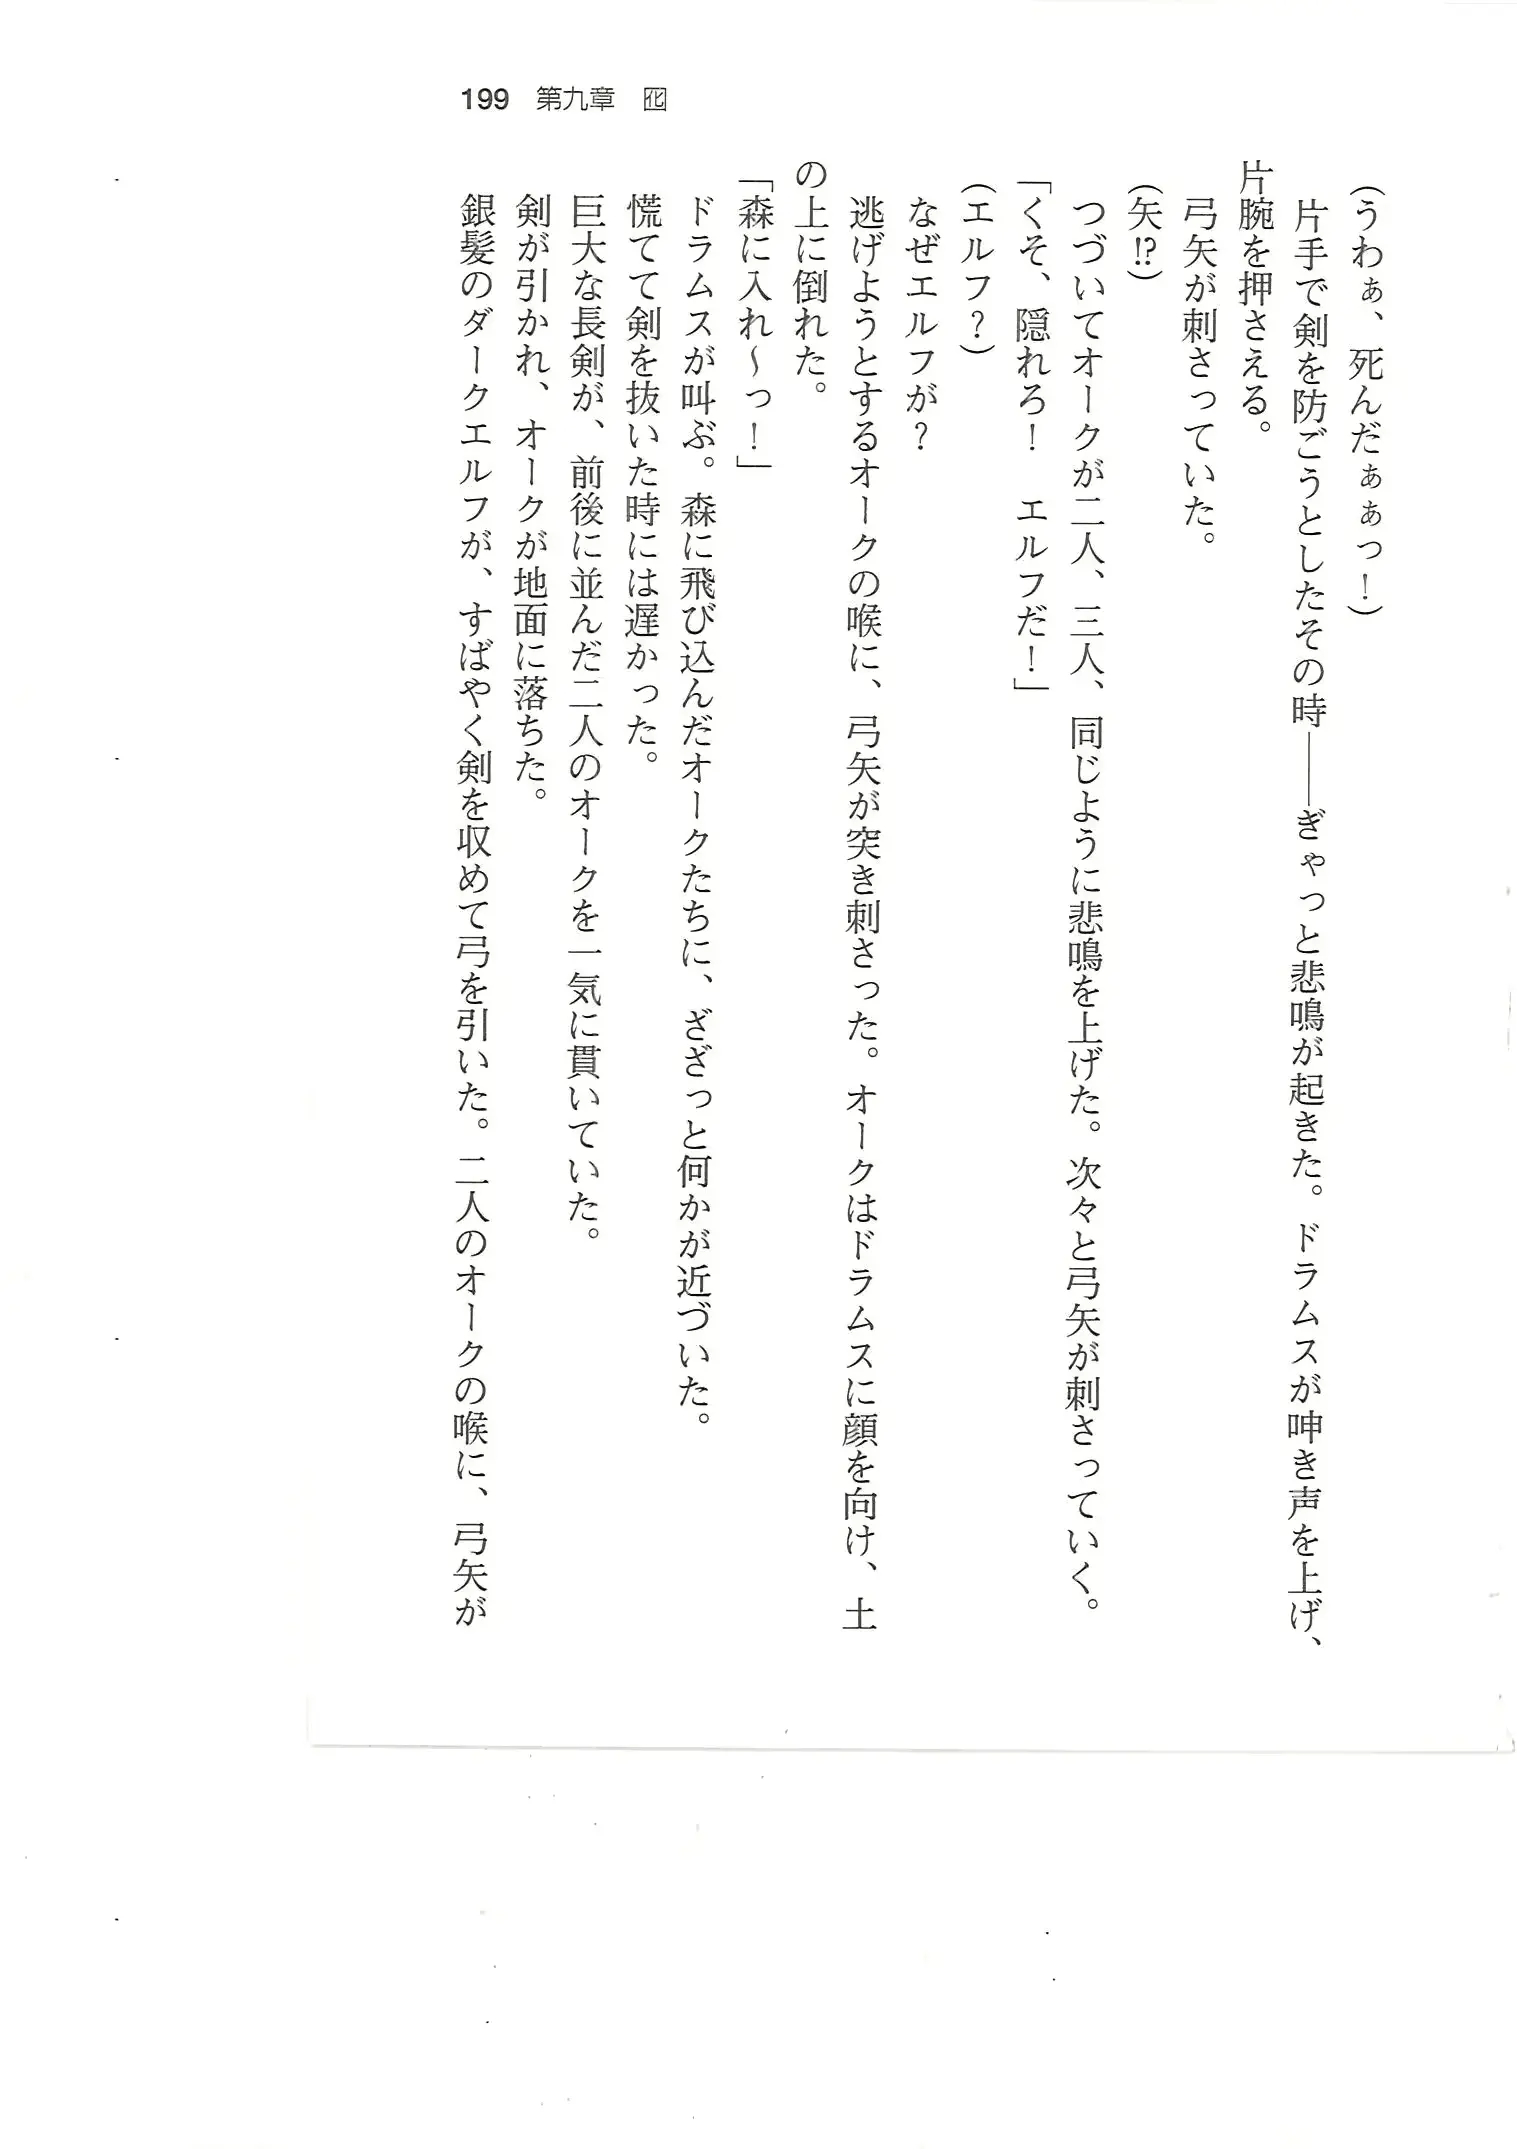 199 第九章 囮
(うわぁ、死んだぁぁっ！)
片手で剣を防ごうとしたその時――ぎゃっと悲鳴が起きた。ドラムスが呻き声を上げ、
片腕を押さえる。
弓矢が刺さっていた。
(矢!?)
つづいてオークが二人、三人、同じように悲鳴を上げた。次々と弓矢が刺さっていく。
「くそ、隠れろ！　エルフだ！」
(エルフ？)
なぜエルフが？
逃げようとするオークの喉に、弓矢が突き刺さった。オークはドラムスに顔を向け、土
の上に倒れた。
「森に入れ～っ！」
ドラムスが叫ぶ。森に飛び込んだオークたちに、ざざっと何かが近づいた。
慌てて剣を抜いた時には遅かった。
巨大な長剣が、前後に並んだ二人のオークを一気に貫いていた。
剣が引かれ、オークが地面に落ちた。
銀髪のダークエルフが、すばやく剣を収めて弓を引いた。二人のオークの喉に、弓矢が